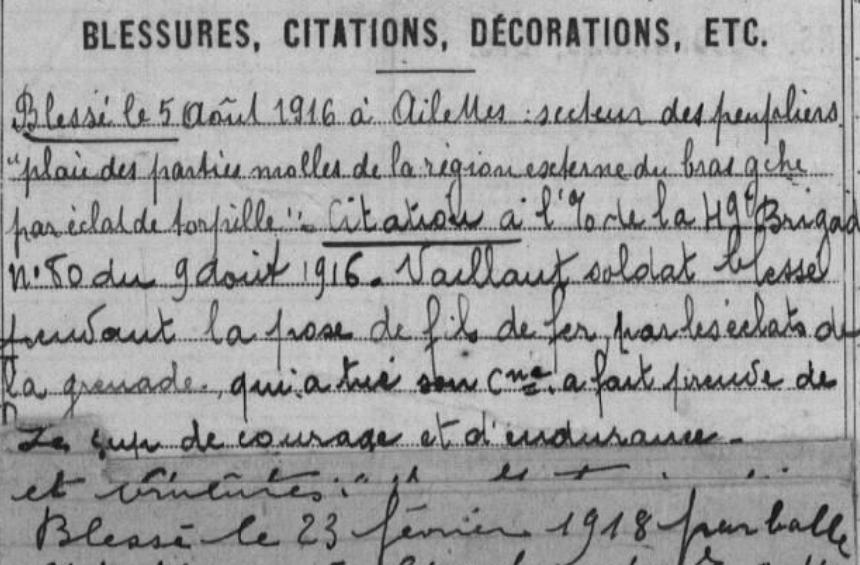 BLESSURES, CITATIONS, DÉCORATIONS, ETC.
Blessé le 5 Août 1916 à Ailettes : secteur des peupliers
"plaie des parties molles de la région externe du bras gche
par éclat de torpille" - Citation à l'% de la 49e Brigad
n° 80 du 9 août 1916. Vaillant soldat blessé
pendant la pose de fils de fer, par les éclats de
la grenade, qui a tué son Cne a fait preuve de
de courage et d'endurance.
et
Blessé le 23 février 1918 par balle